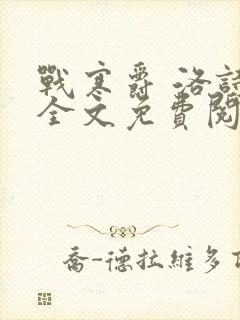 戰寒爵 洛詩
全文免費閱
喬-德拉維多